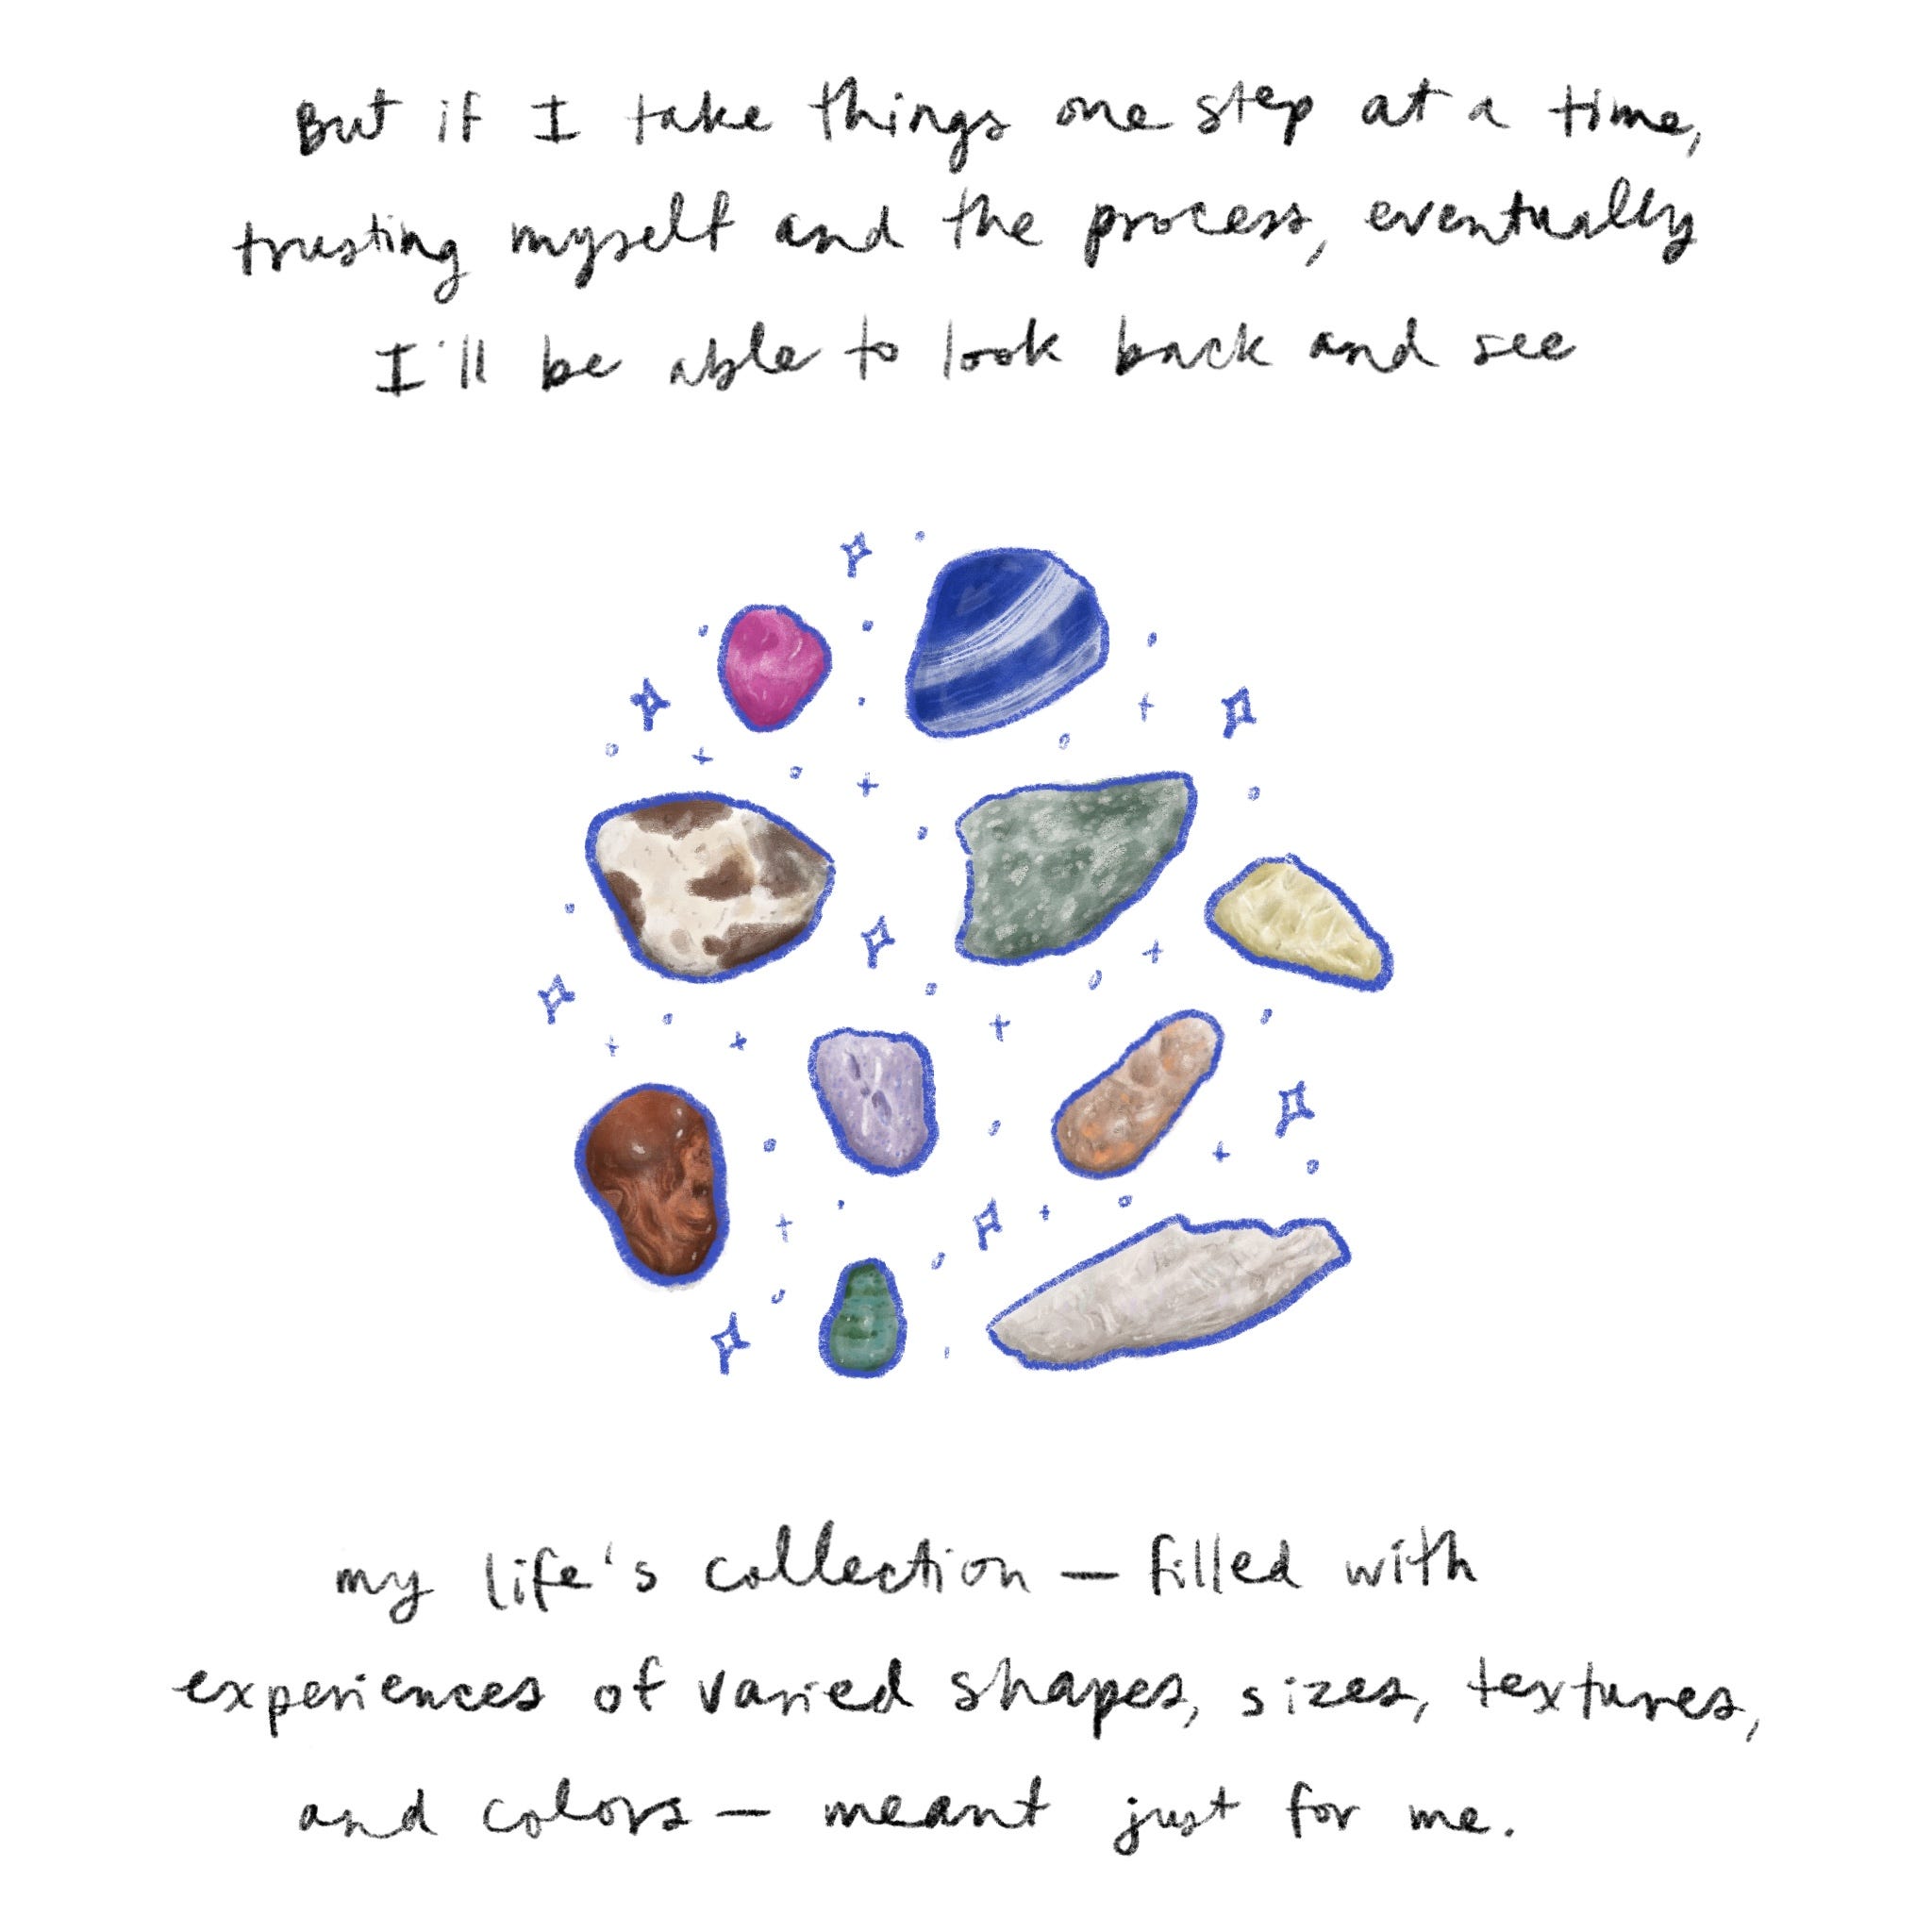 But if I take things one step at a time,
trusting myself and the process, eventually
I'll be able to look back and see
my life's collection — filled with
experiences of varied shapes, sizes, textures,
and colors — meant just for me.